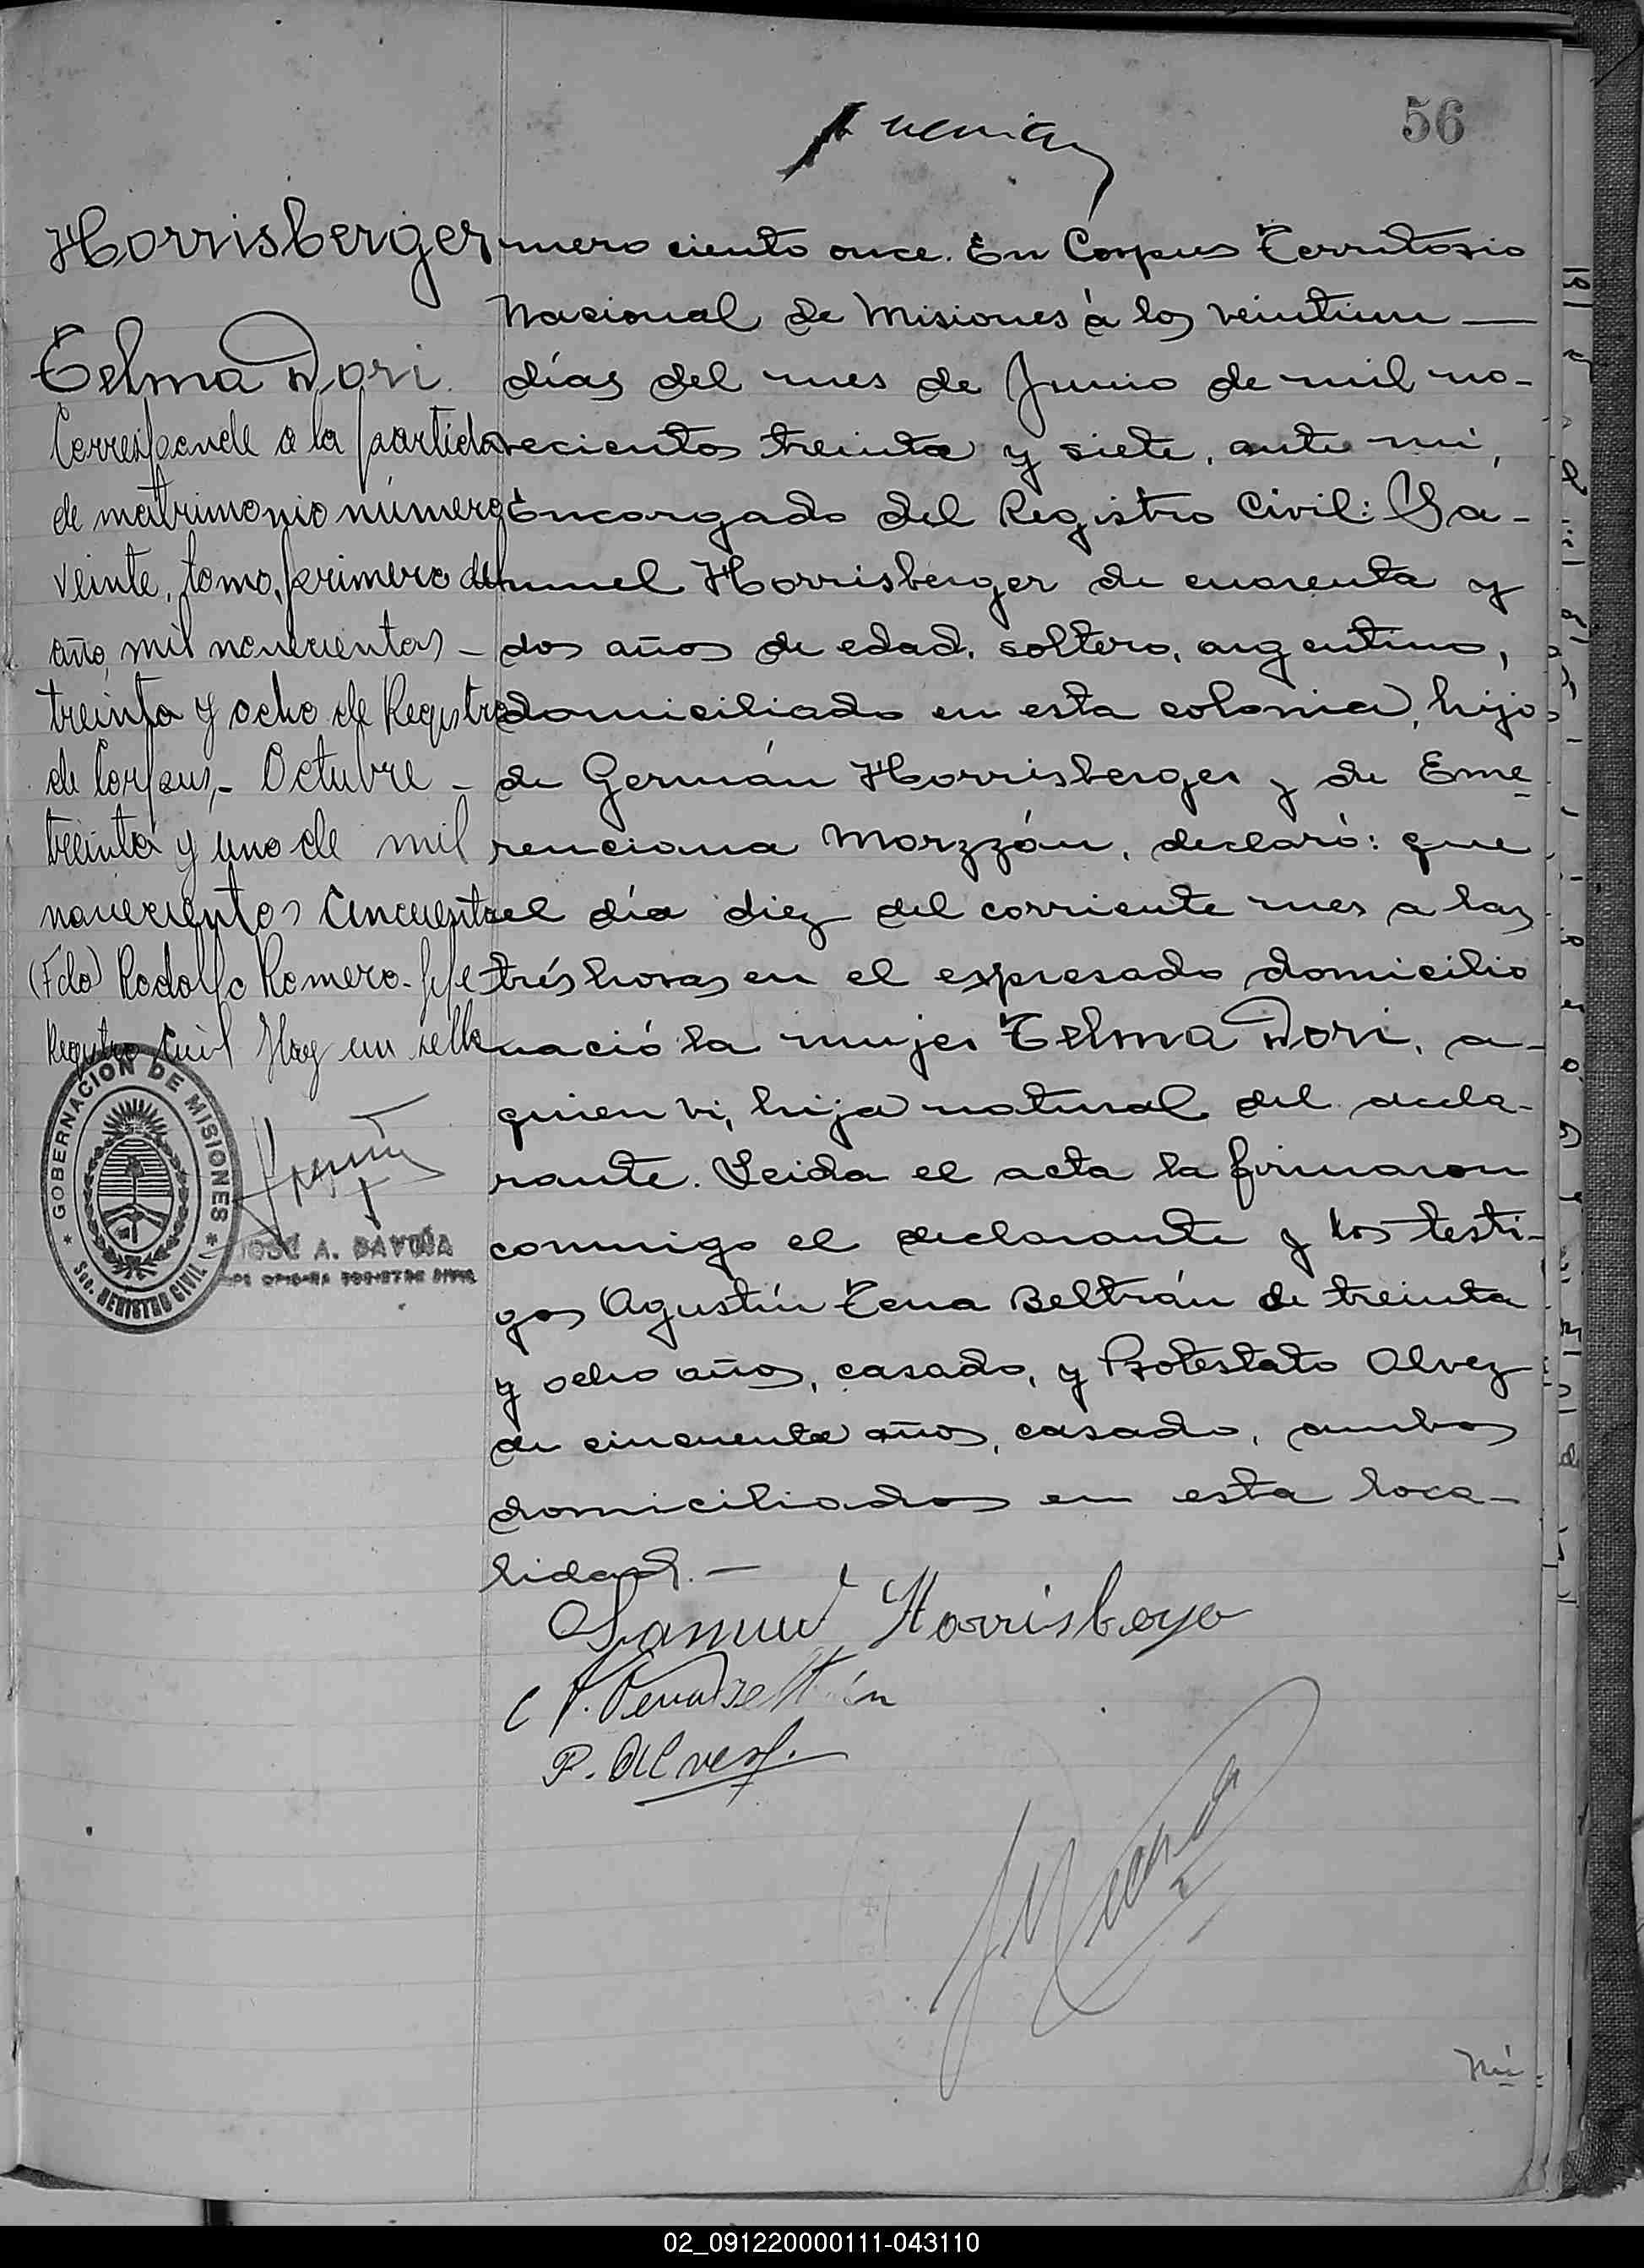 56
Horrisberger
Telma Dori.
Corresponde a la partida
de matrimonio número
veinte, tomo, primero del
año mil novecientos –
treinta y ocho de Registro
de Corpus,- Octubre –
treinta y uno de mil
novecientos cincuenta
(Fdo) Rodolfo Romero. Jefe
Registro Civil Hay un sello
GOBERNACION DE MISIONES
Sec. REGISTRO CIVIL
JOSÉ A.
mero ciento once. En Corpus Territorio
Nacional de Misiones á los veintiun —
días del mes de Junio de mil no-
vecientos treinta y siete, ante mi,
Encargado del Registro Civil: Sa-
muel Horrisberger de cuarenta y
dos años de edad, soltero, argentino,
domiciliado en esta colonia, hijo
de Germán Horrisberger y de Eme
renciana Morzzán, declaró: que
el día diez del corriente mes a las
trés horas en el expresado domicilio
nació la mujer Telma Dori, a-
quien vi, hija natural del decla-
rante. Leida el acta la firmaron
conmigo el declarante y los testi-
gos Agustín Tena Beltrán de treinta
y ocho años, casado, y Protestato Alvez
de cincuenta años, casado, ambos
domiciliados en esta loca-
lidad. —
Samuel Horrisberger
P. Alvez.
Nú-
02_091220000111-043110